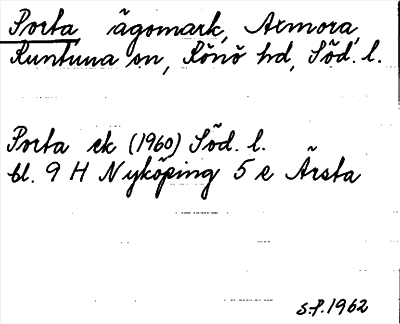 Porta ägomark, Axmora,
Runtuna sn, Rönö hd, Söd. l.
Porta ek (1960) Söd. l.
bl. 9 H Nyköping 5 e Årsta
S.P. 1962